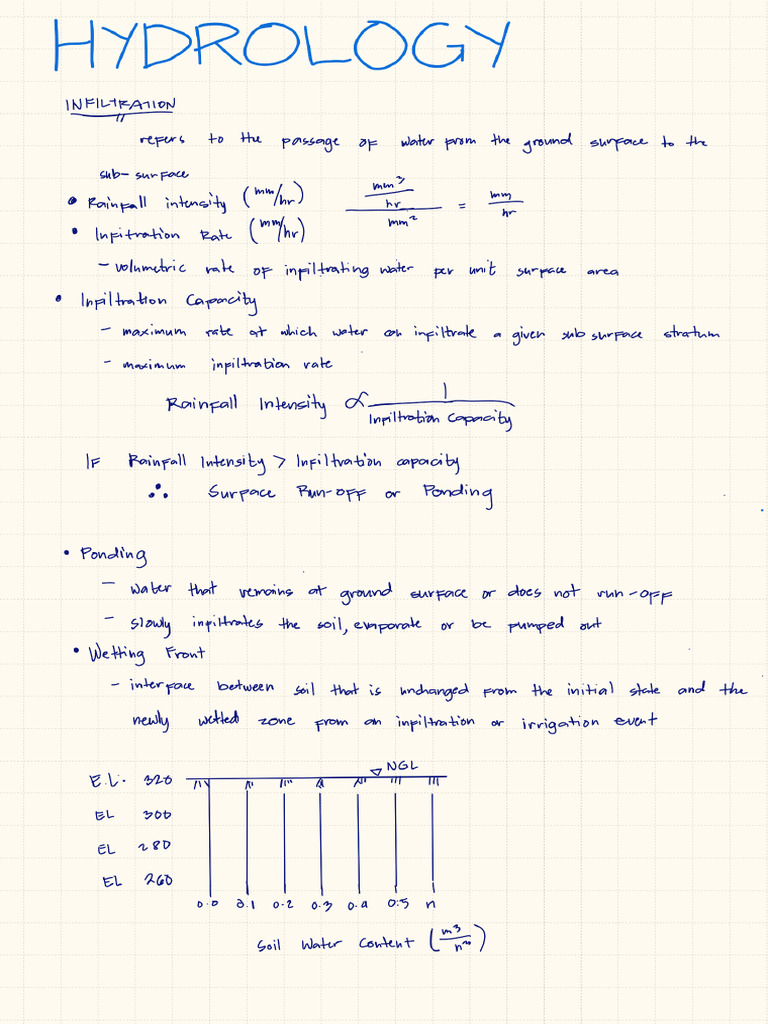 HYDROLOGY
INFILTRATION
refers to the passage of water from the ground surface to the
sub-surface
• Rainfall intensity (mm/hr) mm³/hr / mm² = mm/hr
• Infiltration Rate (mm/hr)
– volumetric rate of infiltrating water per unit surface area
• Infiltration Capacity
– maximum rate at which water can infiltrate a given sub surface stratum
– maximum infiltration rate
Rainfall Intensity ∝ 1 / Infiltration Capacity
IF Rainfall Intensity > Infiltration capacity
∴ Surface Run-off or Ponding
• Ponding
– water that remains at ground surface or does not run-off
– slowly infiltrates the soil, evaporate or be pumped out
• Wetting Front
– interface between soil that is unchanged from the initial state and the
newly wetted zone from an infiltration or irrigation event
NGL
E.L. 320
EL 300
EL 280
EL 260
0.0 0.1 0.2 0.3 0.4 0.5 n
Soil Water Content (m³/